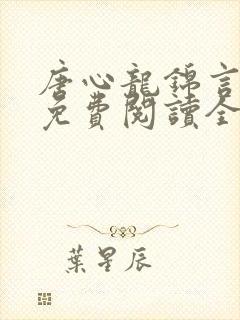 唐心龍錦言
免費閱讀全
葉星辰